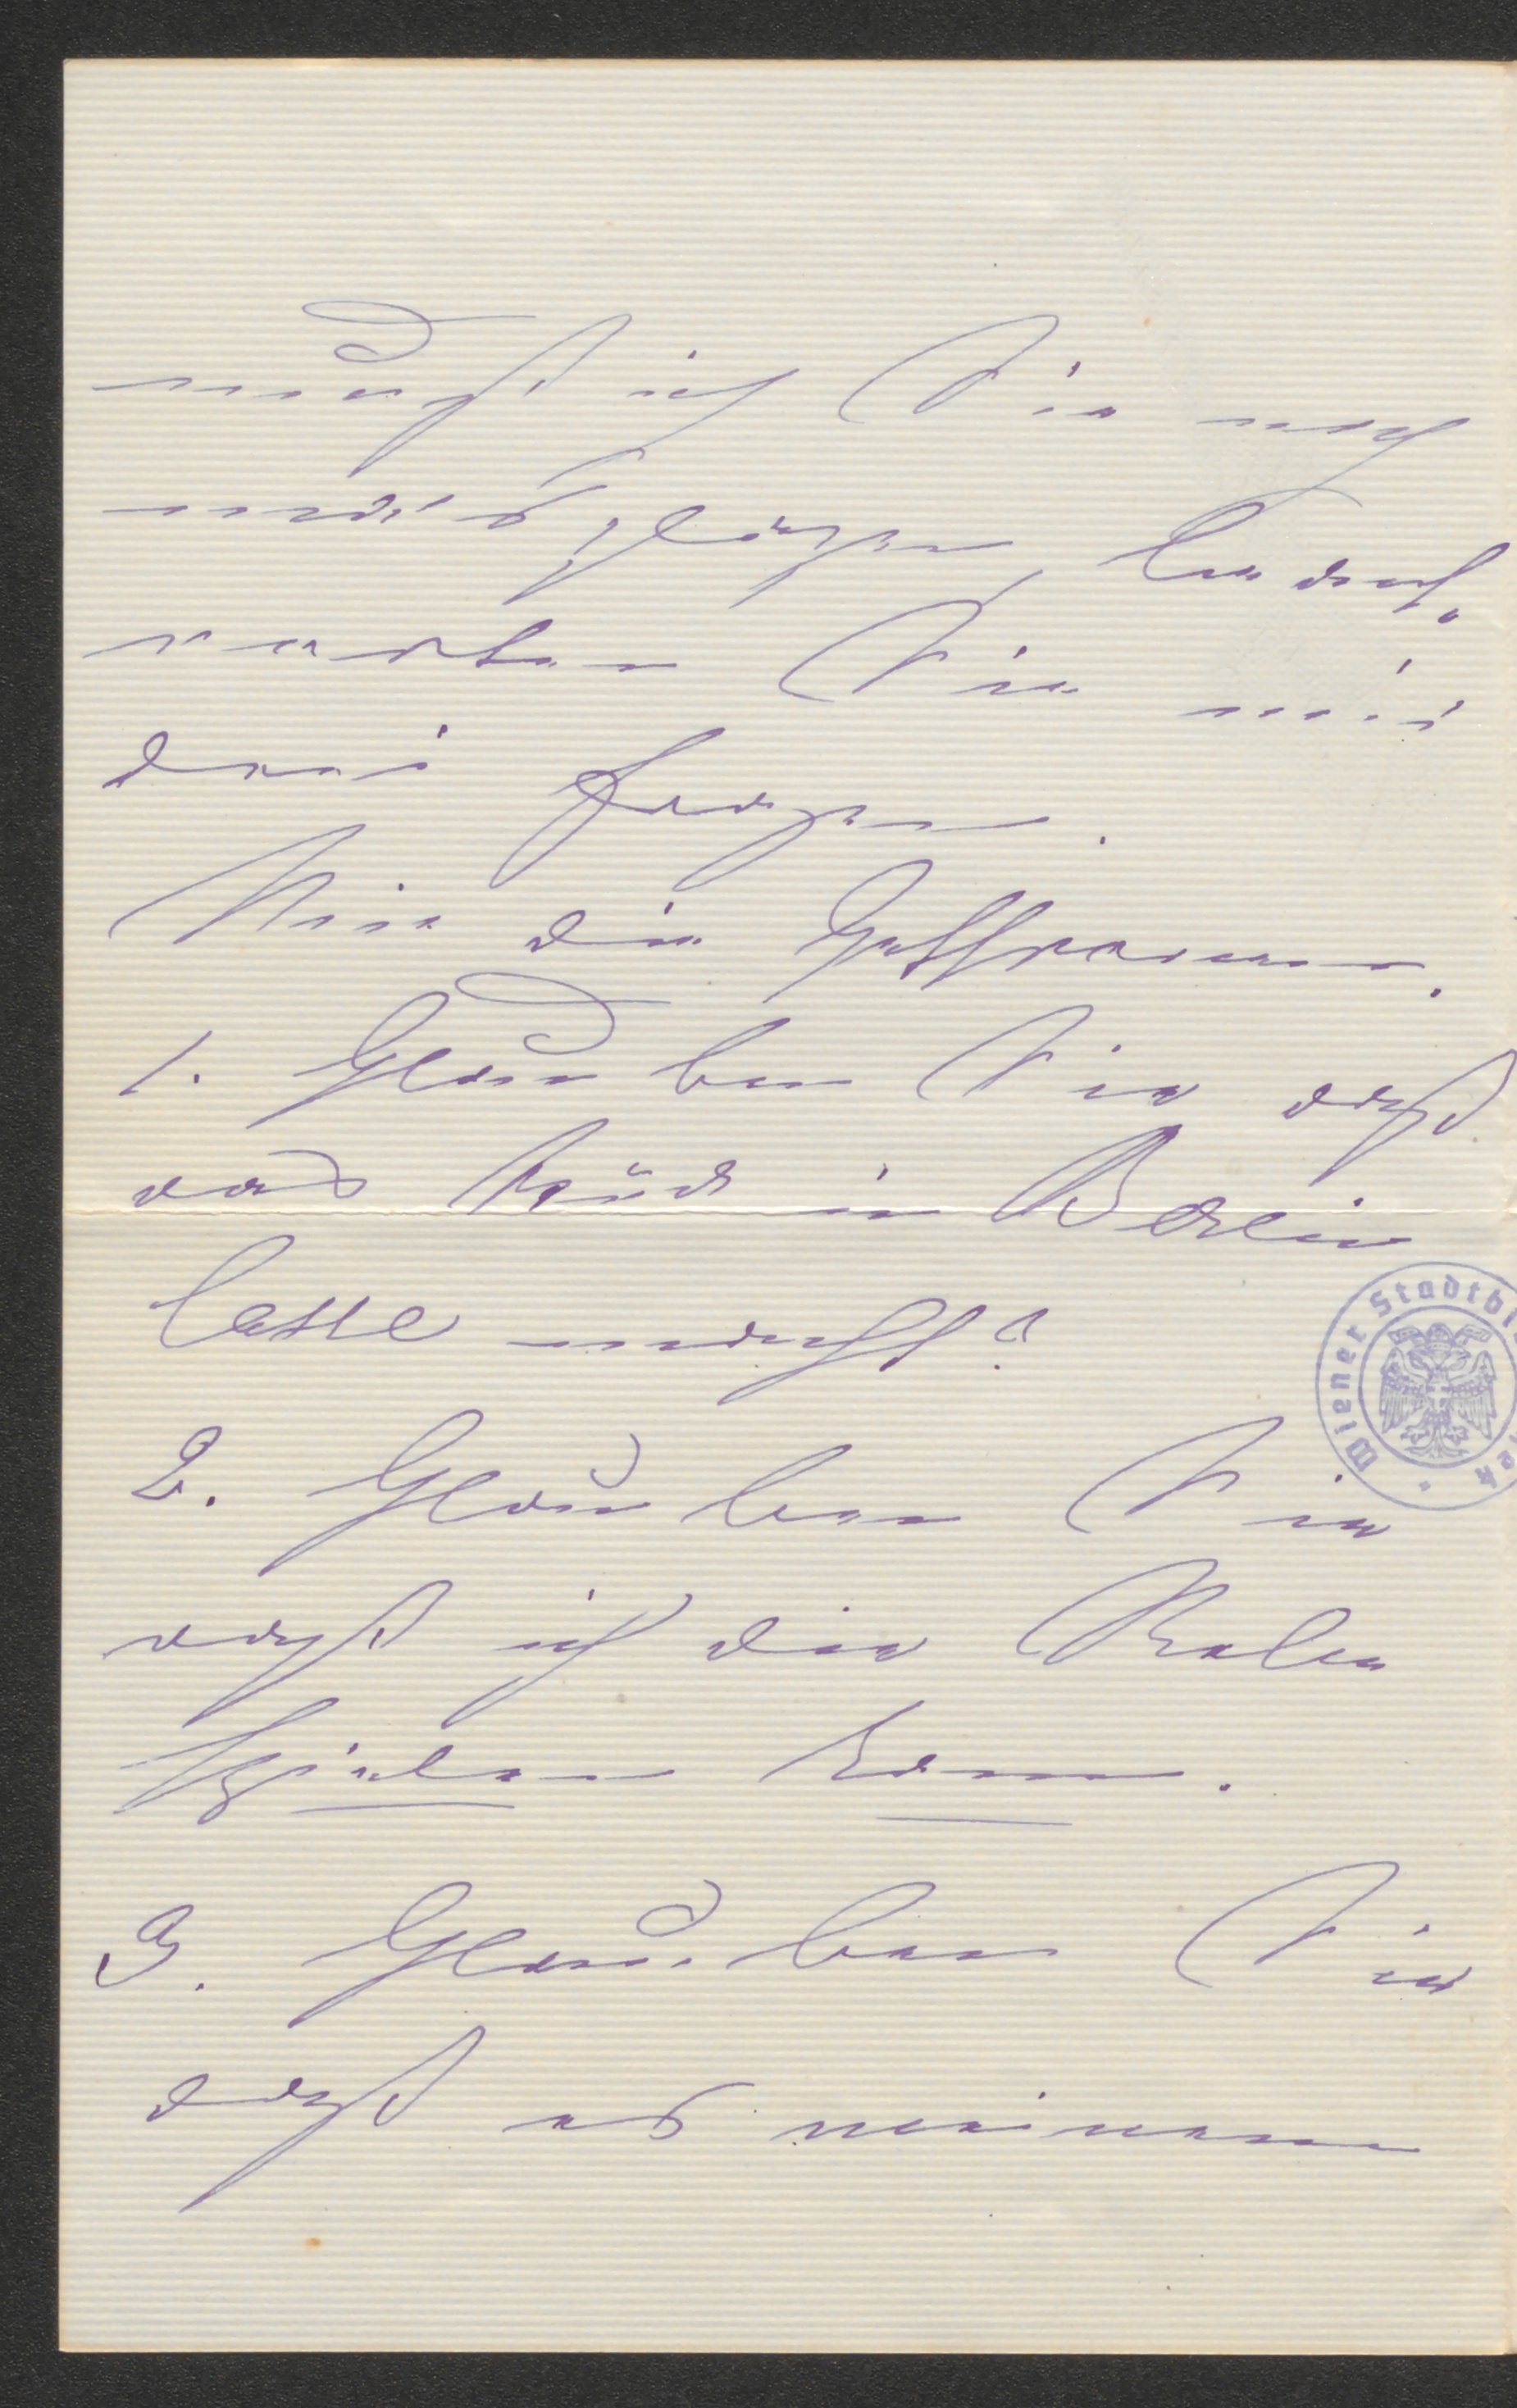 muß ich Sie noch
mals plagen, beant-
worten Sie mir
drei Fragen.
Wie die
1. Glauben Sie daß
das Stück in Berlin
Casse macht?
2. Glauben Sie
daß ich die Rolle
spielen kann.
3. Glauben Sie
daß es meinem
Wiener Stadtbi